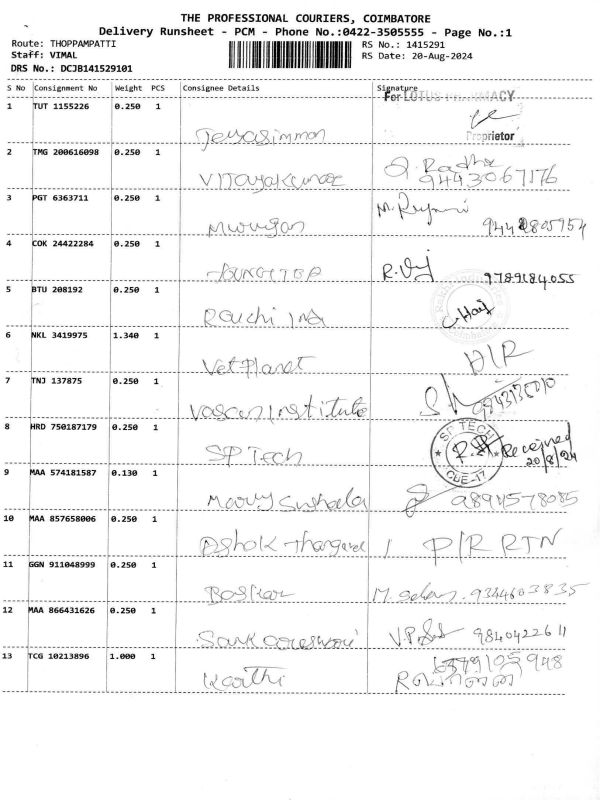 THE PROFESSIONAL COURIERS, COIMBATORE
Delivery Runsheet - PCM - Phone No.:0422-3505555 - Page No.:1
Route: THOPPAMPATTI
Staff: VIMAL
DRS No.: DCJB141529101
RS No.: 1415291
RS Date: 20-Aug-2024
S No Consignment No Weight PCS Consignee Details Signature
For LOTUS PHARMACY
1 TUT 1155226 0.250 1
Proprietor
Jeyasimman
2 TMG 200616098 0.250 1 Radha
Vijayakumar 9443067176
3 PGT 6363711 0.250 1
Murugan
4 COK 24422284 0.250 1 R.
9789184055
5 BTU 208192 0.250 1
Ranchi Ind
6 NKL 3419975 1.340 1
Vet Planet
7 TNJ 137875 0.250 1
Vasan Institute
8 HRD 750187179 0.250 1 SP TECH Received
SP Tech CBE-17 20/8/24
9 MAA 574181587 0.130 1
Mary Sushala 9894578085
10 MAA 857658006 0.250 1
Ashok P/R RTN
11 GGN 911048999 0.250 1
Baskar M. 9344603835
12 MAA 866431626 0.250 1
Sankareswari V.P. 9840422611
13 TCG 10213896 1.000 1
Karthi